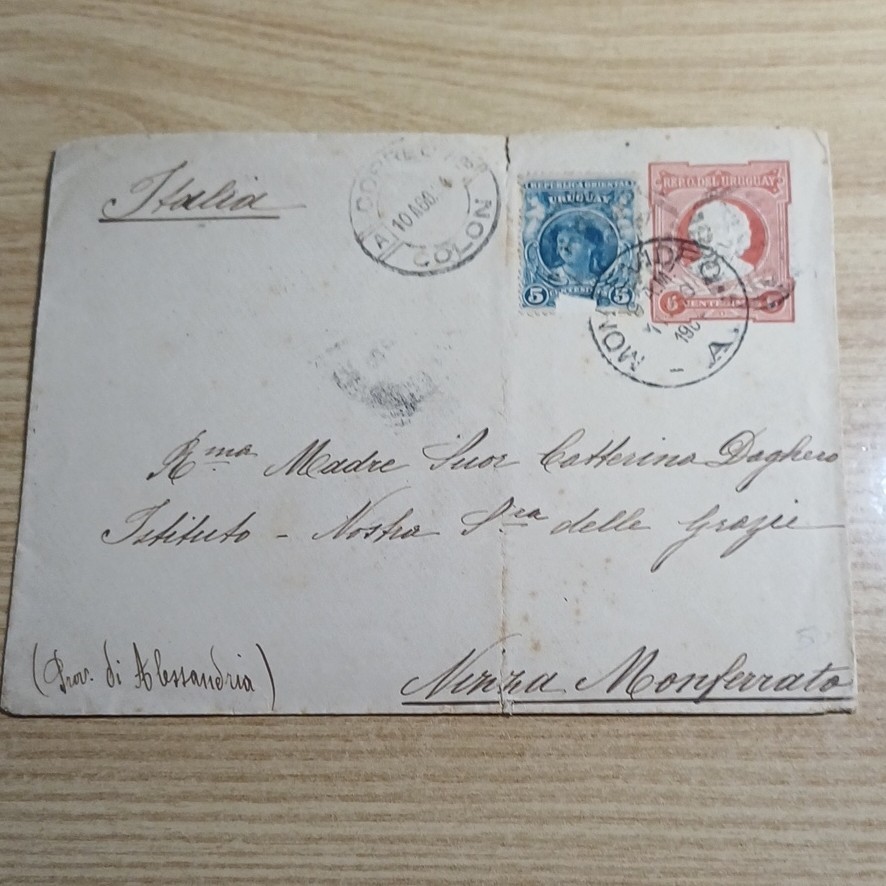 Italia
CORREOS
A
10 AGO
COLON
REPUBLICA ORIENTAL
URUGUAY
5 CENTESIMOS 5
REP. O. DEL URUGUAY
5 CENTESIMOS 5
A.
R.ma Madre Suor Catterina Daghero
Istituto - Nostra S.ra delle Grazie
(Prov. di Alessandria)
Nizza Monferrato